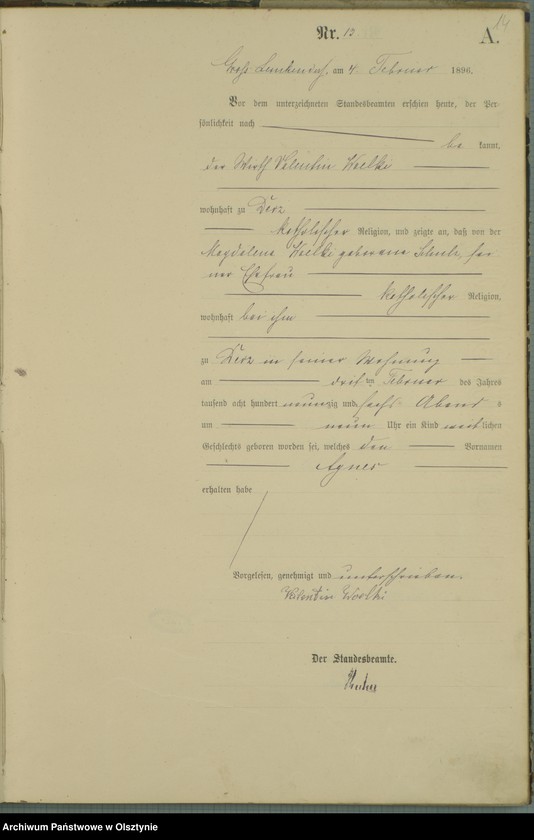 14
Nr. 13
A.
Groß Lemkendorf, am 4. Februar 1896.
Vor dem unterzeichneten Standesbeamten erschien heute, der Per-
sönlichkeit nach
be kannt,
der Wirth Valentin
wohnhaft zu Derz
katholischer Religion, und zeigte an, daß von der
Magdalena geborene sei
ner Ehefrau
katholischer Religion,
wohnhaft bei ihm
zu Derz in seiner Wohnung
am dritten Februar des Jahres
tausend acht hundert neunzig und sechs Abends
um neun Uhr ein Kind weiblichen
Geschlechts geboren worden sei, welches den Vornamen
Agnes
erhalten habe
Vorgelesen, genehmigt und unterschrieben.
Valentin
Der Standesbeamte.
Archiwum Państwowe w Olsztynie